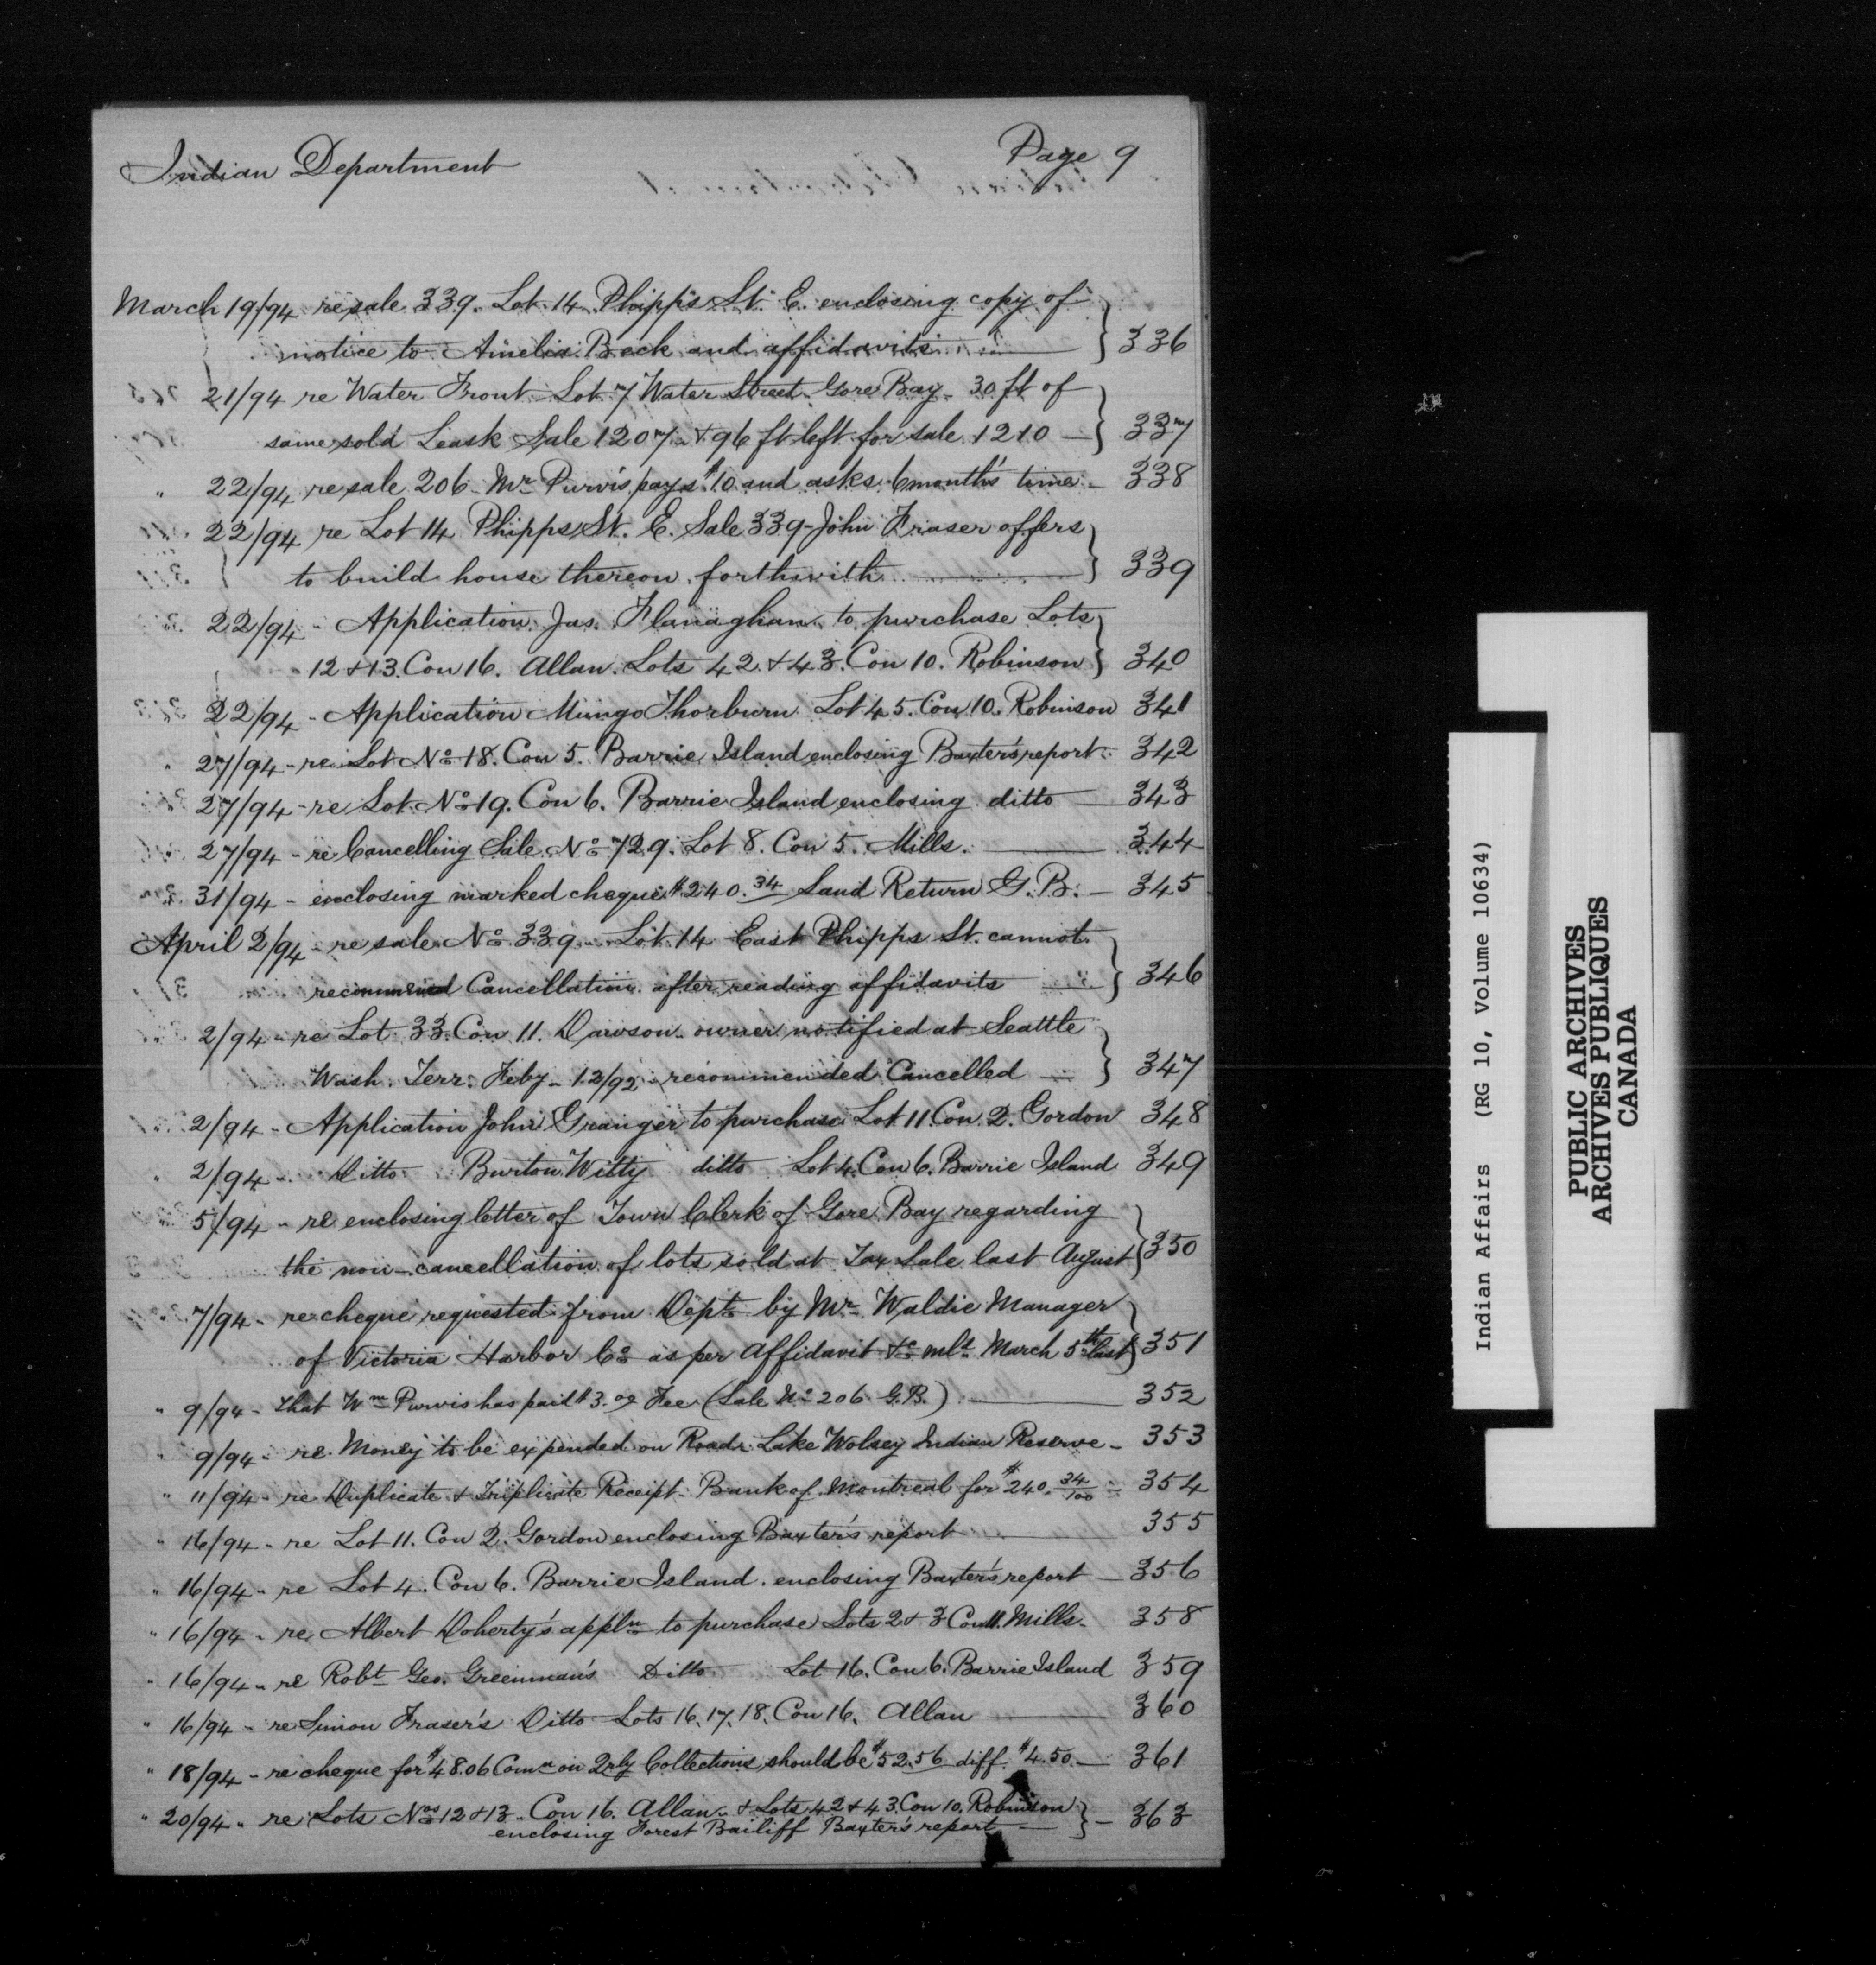 Indian Department
Page 9
March 19/94 re sale 339. Lot 14 Phipps St. E. enclosing copy of
notice to Amelia Beck and affidavits } 336
21/94 re Water Front Lot 7 Water Street Gore Bay - 30 ft of
same sold Leask Sale 1207 - & 96 ft left for sale 1210 } 337
" 22/94 re sale 206 Mr Purvis pays $10 and asks 6 month's time - 338
22/94 re Lot 14 Phipps St. E. Sale 339 - John Fraser offers
to build house thereon forthwith } 339
22/94 - Application Jas. Flanaghan to purchase Lots
12 & 13. Con 16. Allan. Lots 42 & 43. Con 10. Robinson } 340
22/94 - Application Mungo Thorburn Lot 45. Con 10. Robinson 341
" 27/94 - re Lot No 18. Con 5. Barrie Island enclosing Baxter's report - 342
27/94 - re Lot No 19. Con 6. Barrie Island enclosing ditto — 343
27/94 - re Cancelling Sale No 729. Lot 8. Con 5. Mills. — 344
31/94 - enclosing marked cheque $240.34 Land Return G. B. - 345
April 2/94 - re sale No 339 - Lot 14 East Phipps St. cannot
recommend Cancellation after reading affidavits } 346
2/94 - re Lot 33. Con 11. Dawson - owner notified at Seattle
Wash. Terr. Feby - 12/92 - recommended Cancelled } 347
2/94 - Application John Granger to purchase Lot 11 Con. 2. Gordon 348
" 2/94 - Ditto Burton Witty ditto Lot 4. Con 6. Barrie Island 349
5/94 - re enclosing letter of Town Clerk of Gore Bay regarding
the non-cancellation of lots sold at Tax Sale last August } 350
7/94 - re cheque requested from Dept by Mr Waldie Manager
of Victoria Harbor Co as per Affidavit &c mld March 5th last } 351
" 9/94 - that Wm Purvis has paid $3.00 Fee (Sale No 206 G. B.) — 352
" 9/94 - re Money to be expended on Roads Lake Wolsey Indian Reserve - 353
" 11/94 - re Duplicate & Triplicate Receipt Bank of Montreal for $240. 34/100 - 354
" 16/94 - re Lot 11. Con 2. Gordon enclosing Baxter's report — 355
" 16/94 - re Lot 4. Con 6. Barrie Island. enclosing Baxter's report — 356
" 16/94 - re Albert Doherty's appln to purchase Lots 2 & 3 Con 11. Mills - 358
" 16/94 - re Robt Geo. Greenman's Ditto Lot 16. Con 6. Barrie Island 359
" 16/94 - re Simon Fraser's Ditto Lots 16. 17. 18. Con 16. Allan — 360
" 18/94 - re cheque for $48.06 Comn on Qrly Collections should be $52.56 diff $4.50 — 361
" 20/94 - re Lots Nos 12 & 13 - Con 16. Allan - & Lots 42 & 43. Con 10. Robinson
enclosing Forest Bailiff Baxter's report } - 363
Indian Affairs (RG 10, Volume 10634)
PUBLIC ARCHIVES
ARCHIVES PUBLIQUES
CANADA